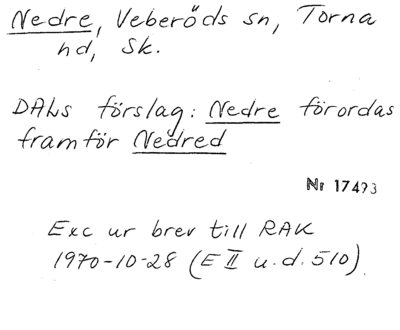 Nedre, Veberöds sn, Torna
hd, Sk.
DALs förslag: Nedre förordas
framför Nedred
Nr 17493
Exc ur brev till RAK
1970-10-28 (E II u.d. 510)